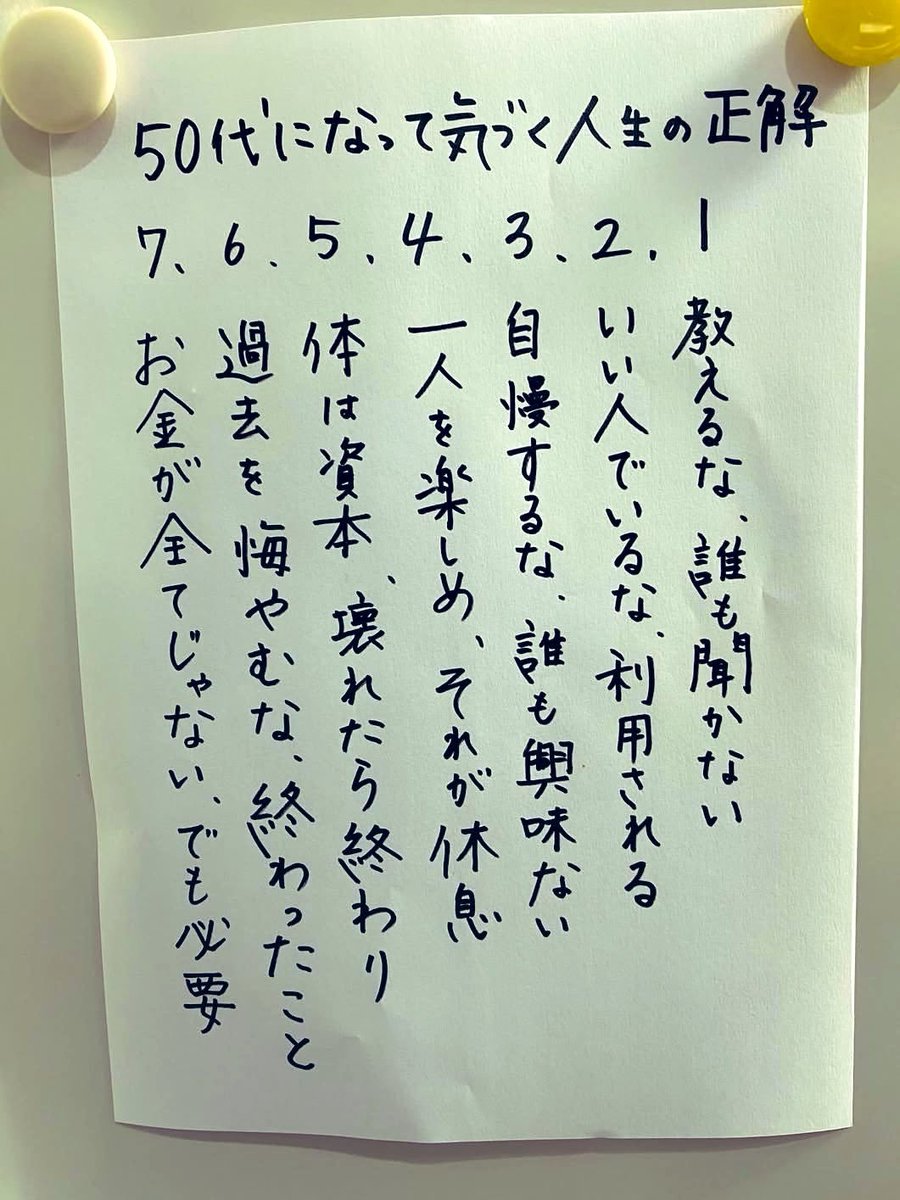 50代になって気づく人生の正解
1 教えるな、誰も聞かない
2、いい人でいるな、利用される
3、自慢するな、誰も興味ない
4、一人を楽しめ、それが休息
5、体は資本、壊れたら終わり
6、過去を悔やむな、終わったこと
7、お金が全てじゃない、でも必要